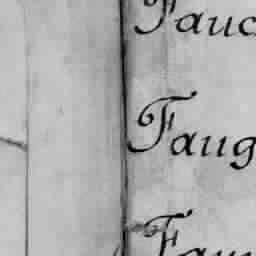 Fauc
Faug
Fau